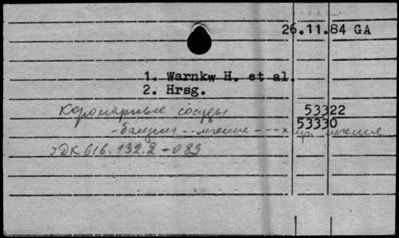 26.11.84 GA
1. Warnkw H. et al.
2. Hrsg.
Коронарные сосуды 53322
53330
УДК 616.132.2-089